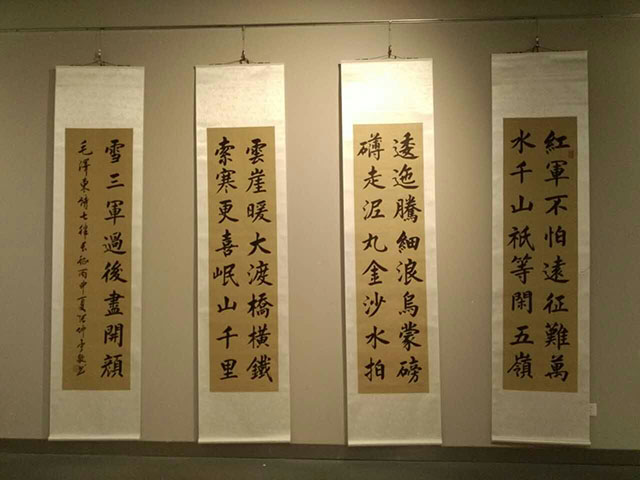 紅軍不怕遠征難萬
水千山祇等閑五嶺
逶迤騰細浪烏蒙磅
礴走泥丸金沙水拍
雲崖暖大渡橋橫鐵
索寒更喜岷山千里
雪三軍過後盡開顏
毛澤東詩七律長征丙申夏